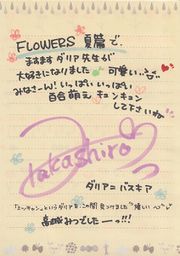 FLOWERS 夏篇で、
ますますダリア先生が
大好きになりました♪ 可愛い…
みなさーん!いっぱいいっぱい
百合萌え キュンキュン
して下さいね
takashiro
ダリア=バスキア
「ニャンニャン」というダリアを、この間 見つけました 嬉しい
高城みつでしたーっ!!!